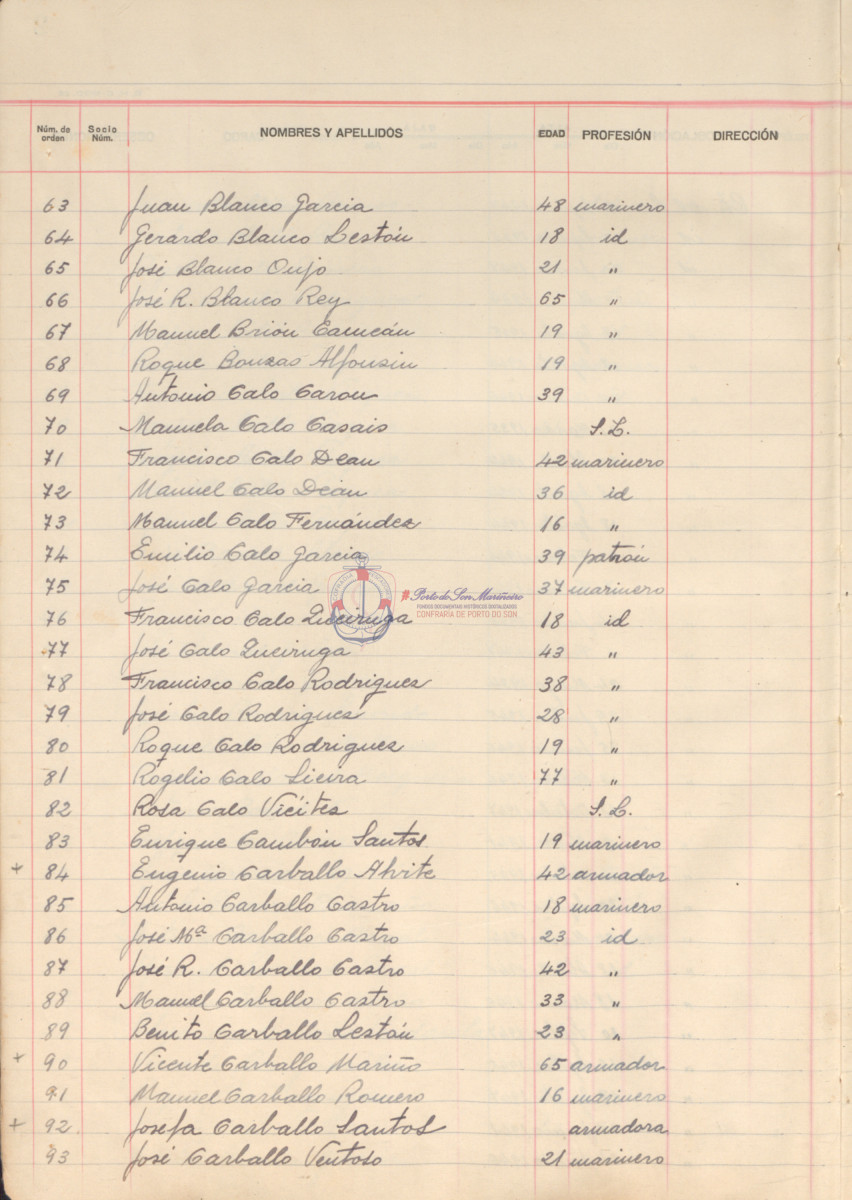 Núm. de orden Socio Núm. NOMBRES Y APELLIDOS EDAD PROFESIÓN DIRECCIÓN
63 Juan Blanco Garcia 48 marinero
64 Gerardo Blanco Lestón 18 id
65 José Blanco Oujo 21 "
66 José R. Blanco Rey 65 "
67 Manuel Brión Cameán 19 "
68 Roque Bouzas Alfonsin 19 "
69 Antonio Calo Carou 39 "
70 Manuela Calo Casais S.L.
71 Francisco Calo Dean 42 marinero
72 Manuel Calo Deán 36 id
73 Manuel Calo Fernández 16 "
74 Emilio Calo Garcia 39 patrón
75 José Calo Garcia 37 marinero
#Porto do Son Mariñeiro
FONDOS DOCUMENTAIS HISTÓRICOS DIGITALIZADOS
CONFRARÍA DE PORTO DO SON
76 Francisco Calo Queiruga 18 id
77 José Calo Queiruga 43 "
78 Francisco Calo Rodriguez 38 "
79 José Calo Rodriguez 28 "
80 Roque Calo Rodriguez 19 "
81 Rogelio Calo Sieira 77 "
82 Rosa Calo Viéites S.L.
83 Enrique Cambón Santos 19 marinero
+ 84 Eugenio Carballo Alvite 42 armador
85 Antonio Carballo Castro 18 marinero
86 José Mª Carballo Castro 23 id
87 José R. Carballo Castro 42 "
88 Manuel Carballo Castro 33 "
89 Benito Carballo Lestón 23 "
+ 90 Vicente Carballo Mariño 65 armador
91 Manuel Carballo Romero 16 marinero
+ 92 Josefa Carballo Santos armadora
93 José Carballo Ventoso 21 marinero